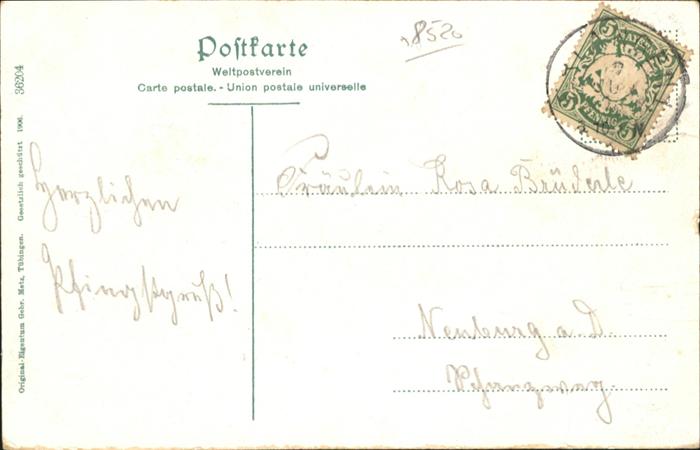 Postkarte
Weltpostverein
Carte postale. - Union postale universelle
8520
5 BAYERN 5
5 PFENNIG 5
36204
Original-Eigentum Gebr. Metz, Tübingen. Gesetzlich geschützt 1906.
Herzlichen
Pfingstgruß!
Fräulein Rosa Brüderle
Neuburg a. D.